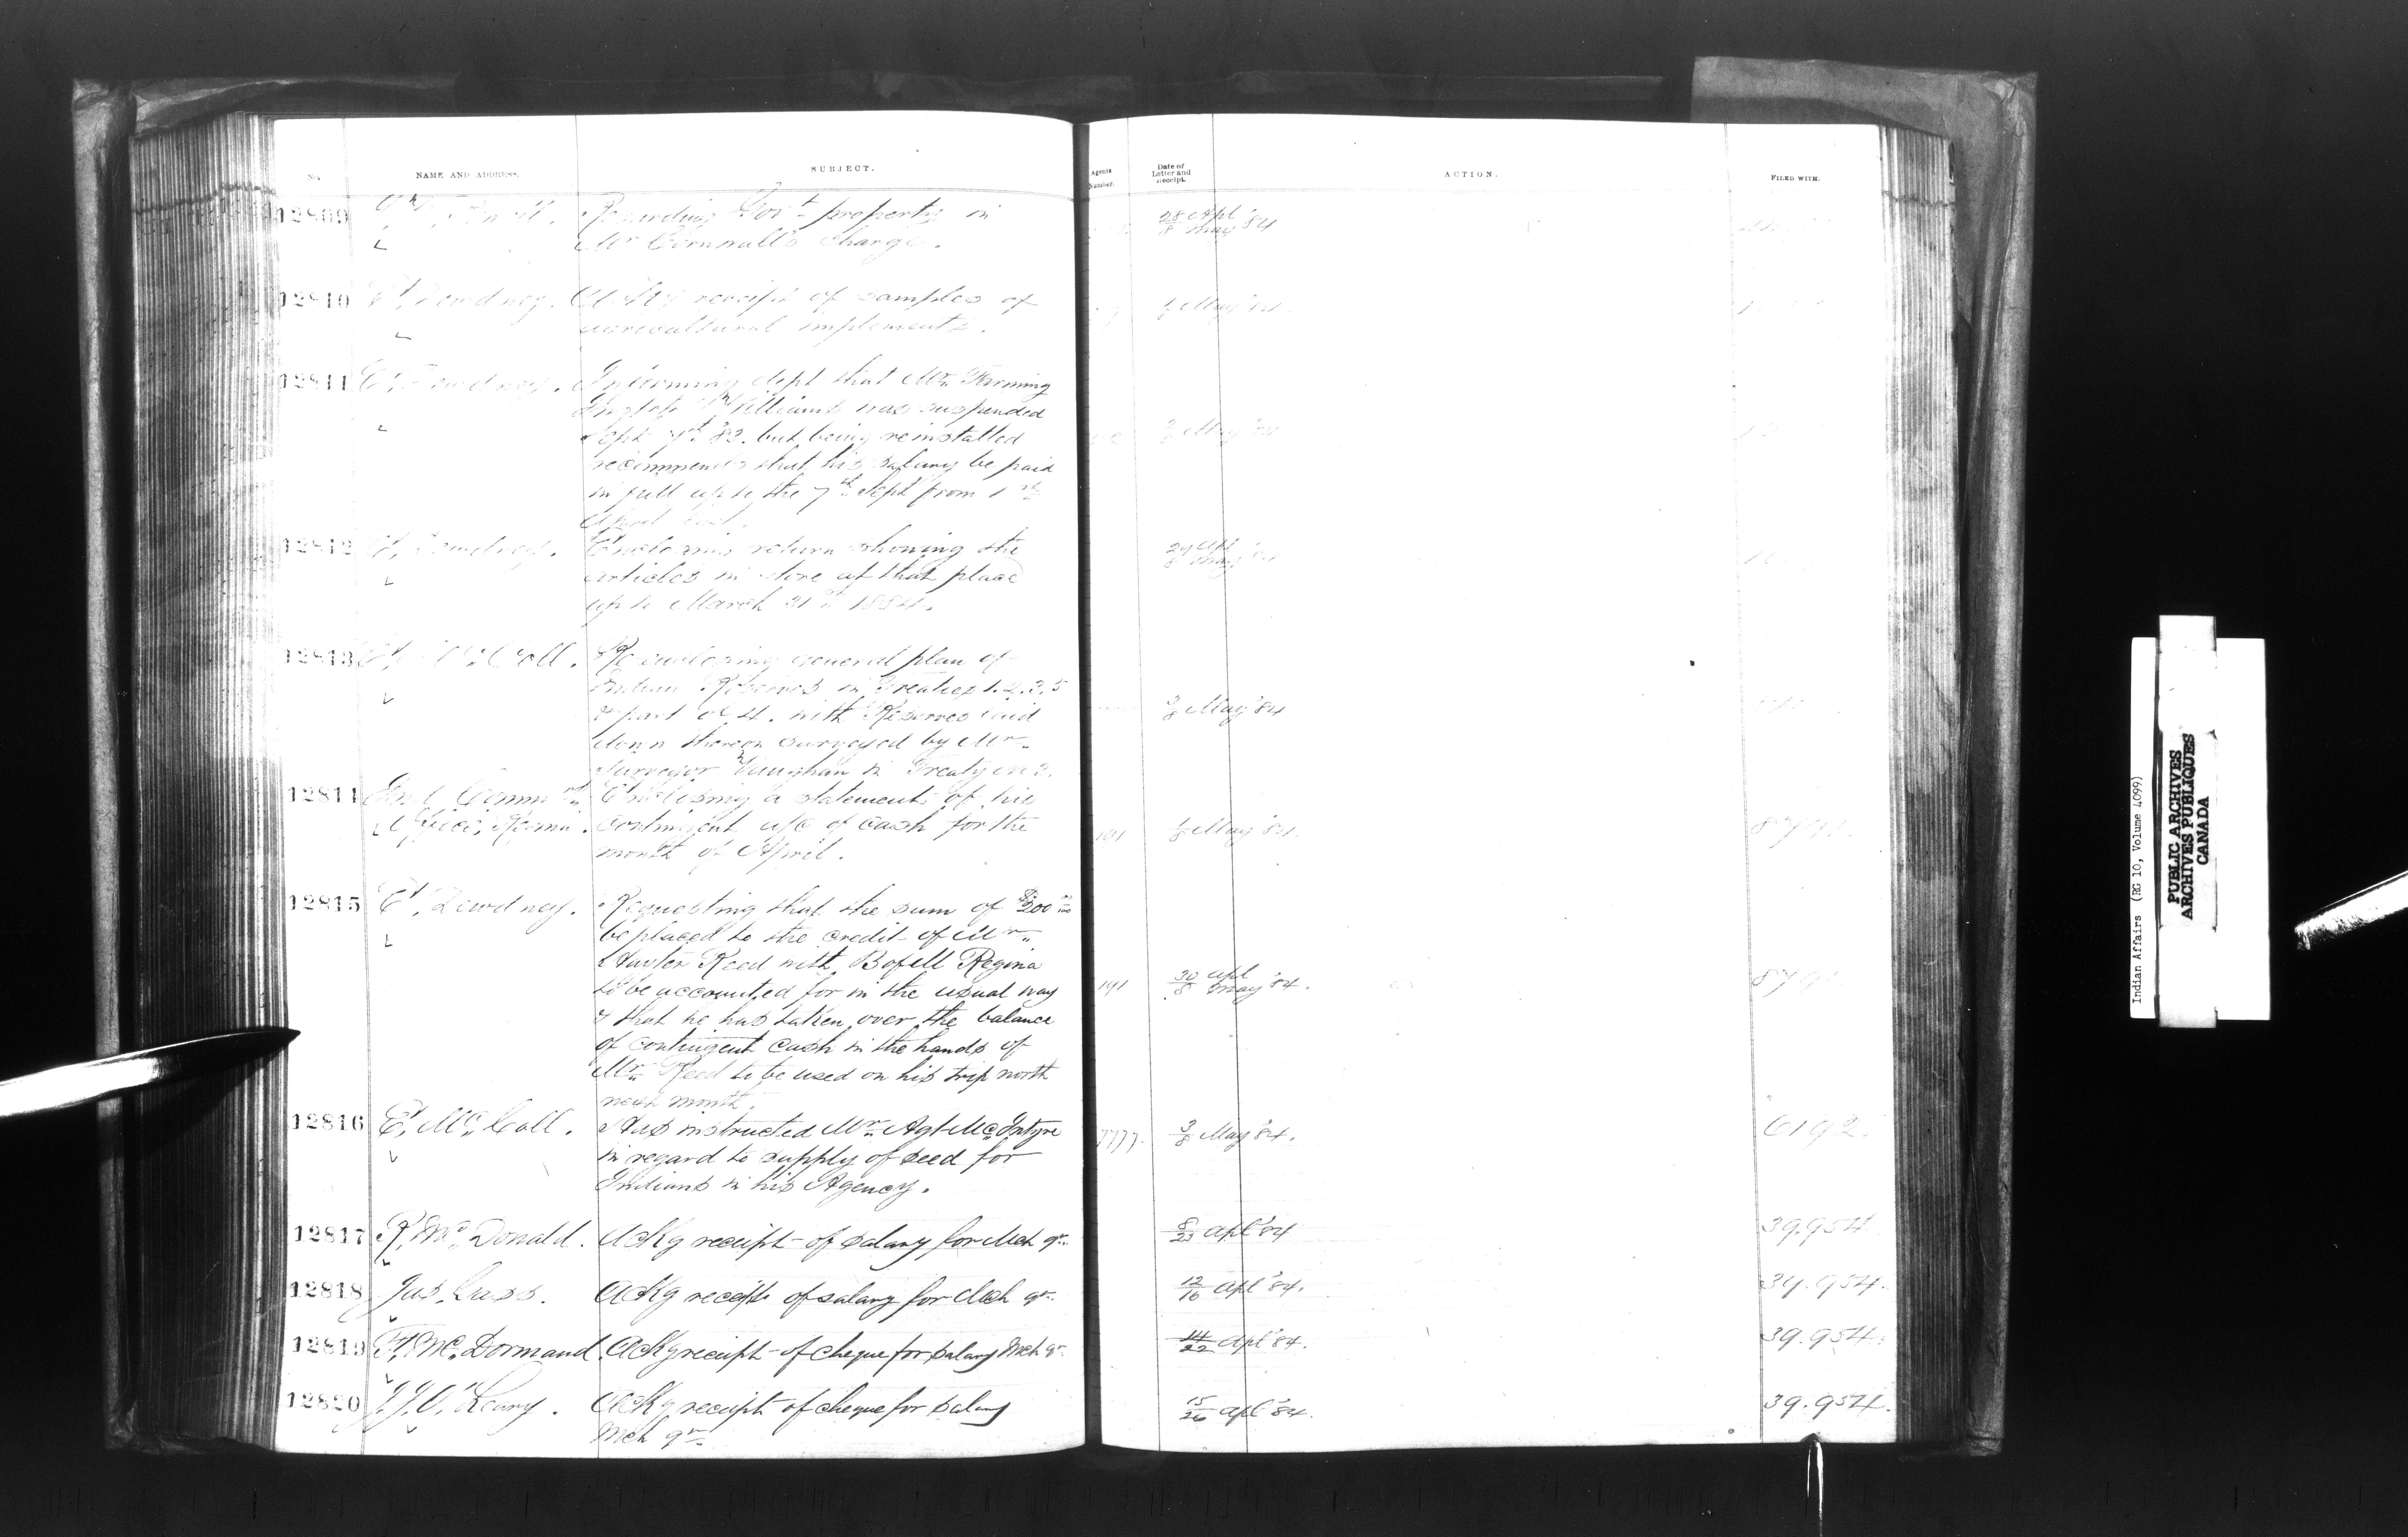 No. NAME AND ADDRESS. SUBJECT. Agents Number. Date of Letter and Receipt. ACTION. FILED WITH.
12809 Regarding Gov't property in 28/8 Apl May '84
Mr Cornwall's charge.
12810 E. Dewdney. Ackg receipt of samples of May '84
agricultural implements.
12811 E. Dewdney. Informing dept that Mr Farming
Williams was suspended
Sept 7th 83. but being reinstalled May '84
recommends that his salary be paid
in full up to the 7th Sept from 1st
April
12812 E. Dewdney. Enclosing return showing the 29/8 Apl May '84
articles in store at that place
up to March 31st 1884.
12813 E. McColl. enclosing general plan of
Indian Reserves in Treaties 1. 2. 3. 5
& part of 4. with Reserves laid 3/8 May '84
down thereon surveyed by Mr
Surveyor Vaughan in Treaty No 3.
12814 Ind Commr Enclosing a statement of his
Office, Regina. contingent a/c of cash for the 191 1/8 May '84.
month of April.
12815 E. Dewdney. Requesting that the sum of $200 00/100
be placed to the credit of Mr
Hayter Reed with B of M Regina
to be accounted for in the usual way 191 30/8 Apl May '84.
& that he has taken over the balance
of contingent cash in the hands of
Mr Reed to be used on his trip north
next month.
12816 E. McColl. Has instructed Mr Agt McIntyre 7777. 3/8 May '84. 6192.
in regard to supply of seed for
Indians in his Agency.
12817 R. McDonald. Ackg receipt of salary for Mch qr. 8/23 Apl '84 39.954
12818 Jas. Cass. Ackg receipt of salary for Mch qr. 12/16 Apl '84. 39.954.
12819 F. McDormand. Ackg receipt of cheque for salary Mch qr 14/22 Apl '84. 39.954.
12820 J.J. O'Leary. Ackg receipt of cheque for salary 15/26 Apl '84. 39.954.
Mch qr.
Indian Affairs (RG 10, Volume 4099)
PUBLIC ARCHIVES
ARCHIVES PUBLIQUES
CANADA